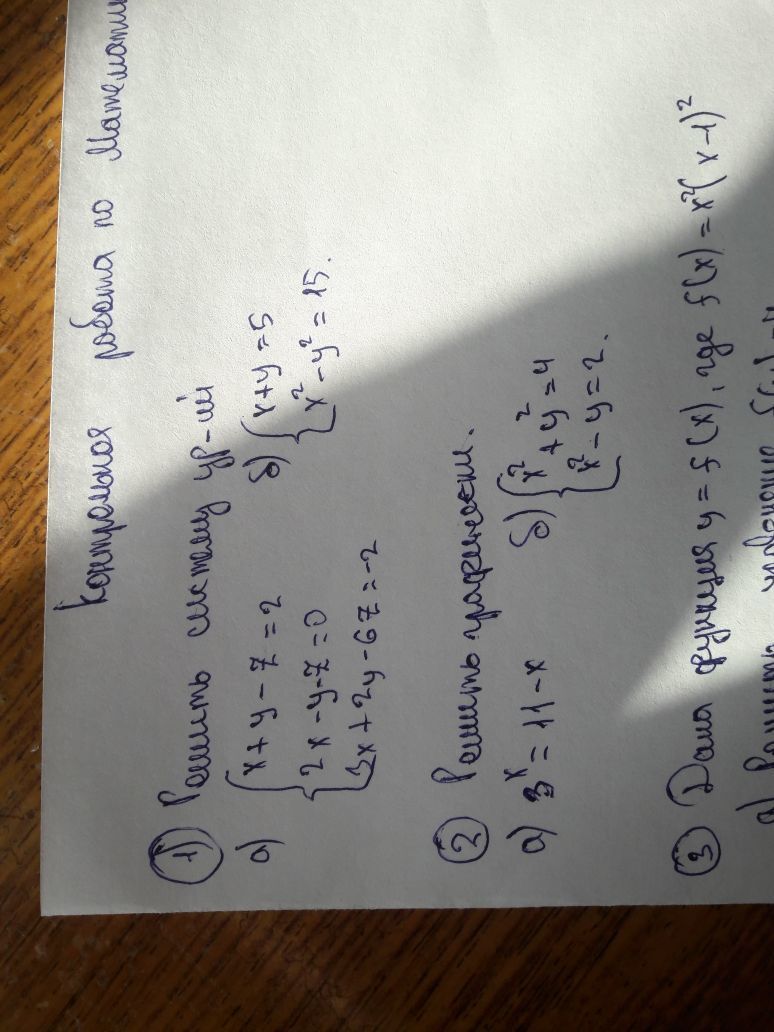 Контрольная работа по Математик
1) Решить систему ур-ий
а) { x + y - z = 2
2x - y - z = 0
3x + 2y - 6z = -2
б) { x + y = 5
x² - y² = 15.
2) Решить графически.
а) 3ˣ = 11 - x
б) { x² + y² = 4
x² - y = 2.
3) Дана функция y = f(x), где f(x) = x²(x - 1)²
а) Решить уравнение